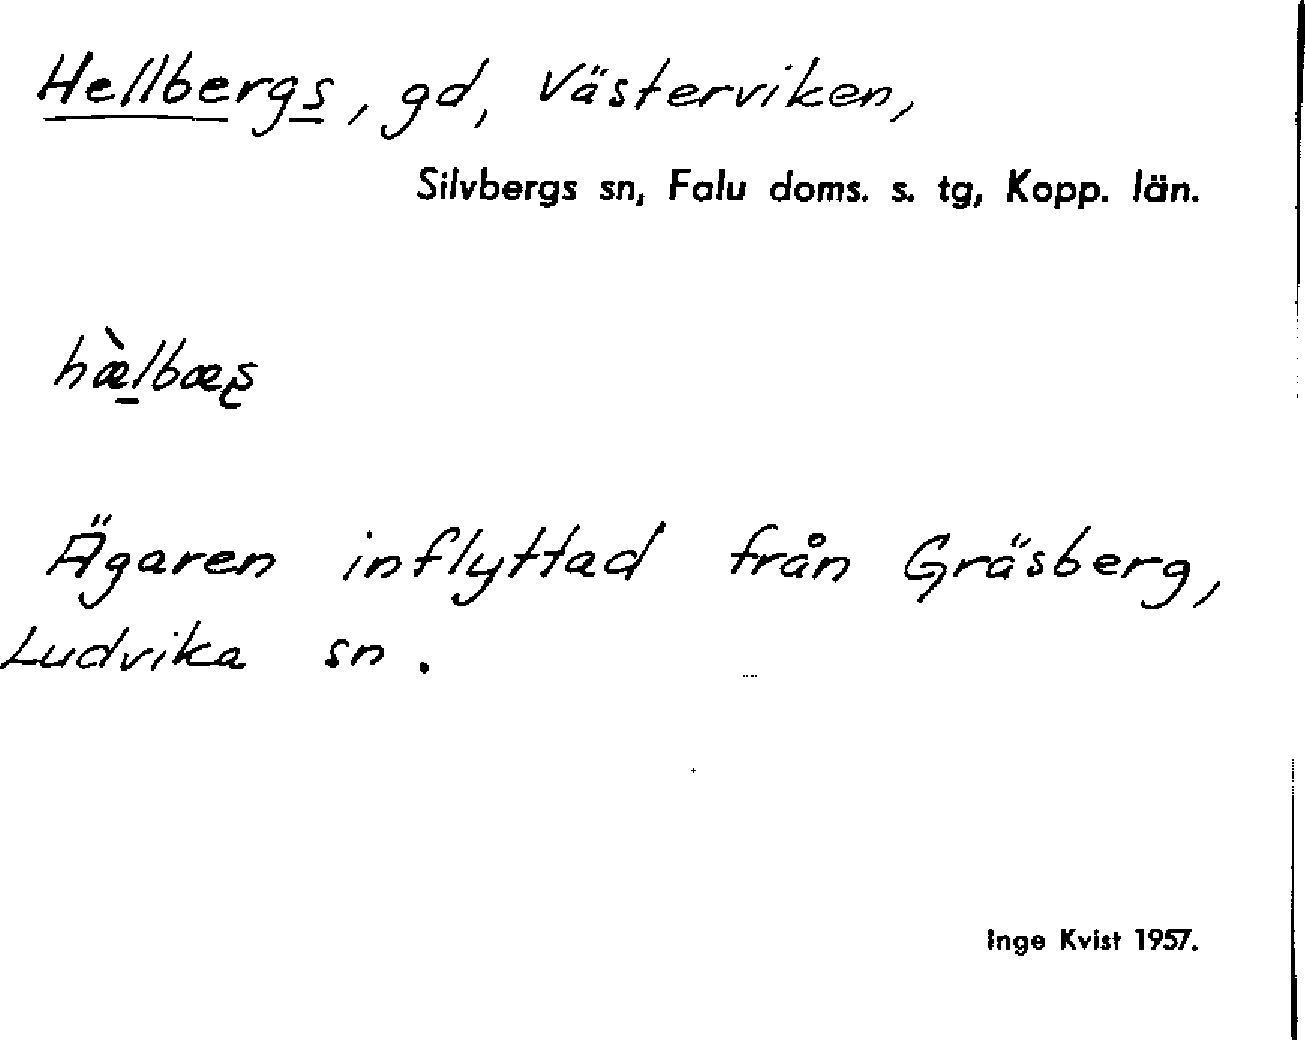 Hellbergs, gd, Västerviken,
Silvbergs sn, Falu doms. s. tg, Kopp. län.
hæ̀lbæʂ
Ägaren inflyttad från Gräsberg,
Ludvika sn.
Inge Kvist 1957.